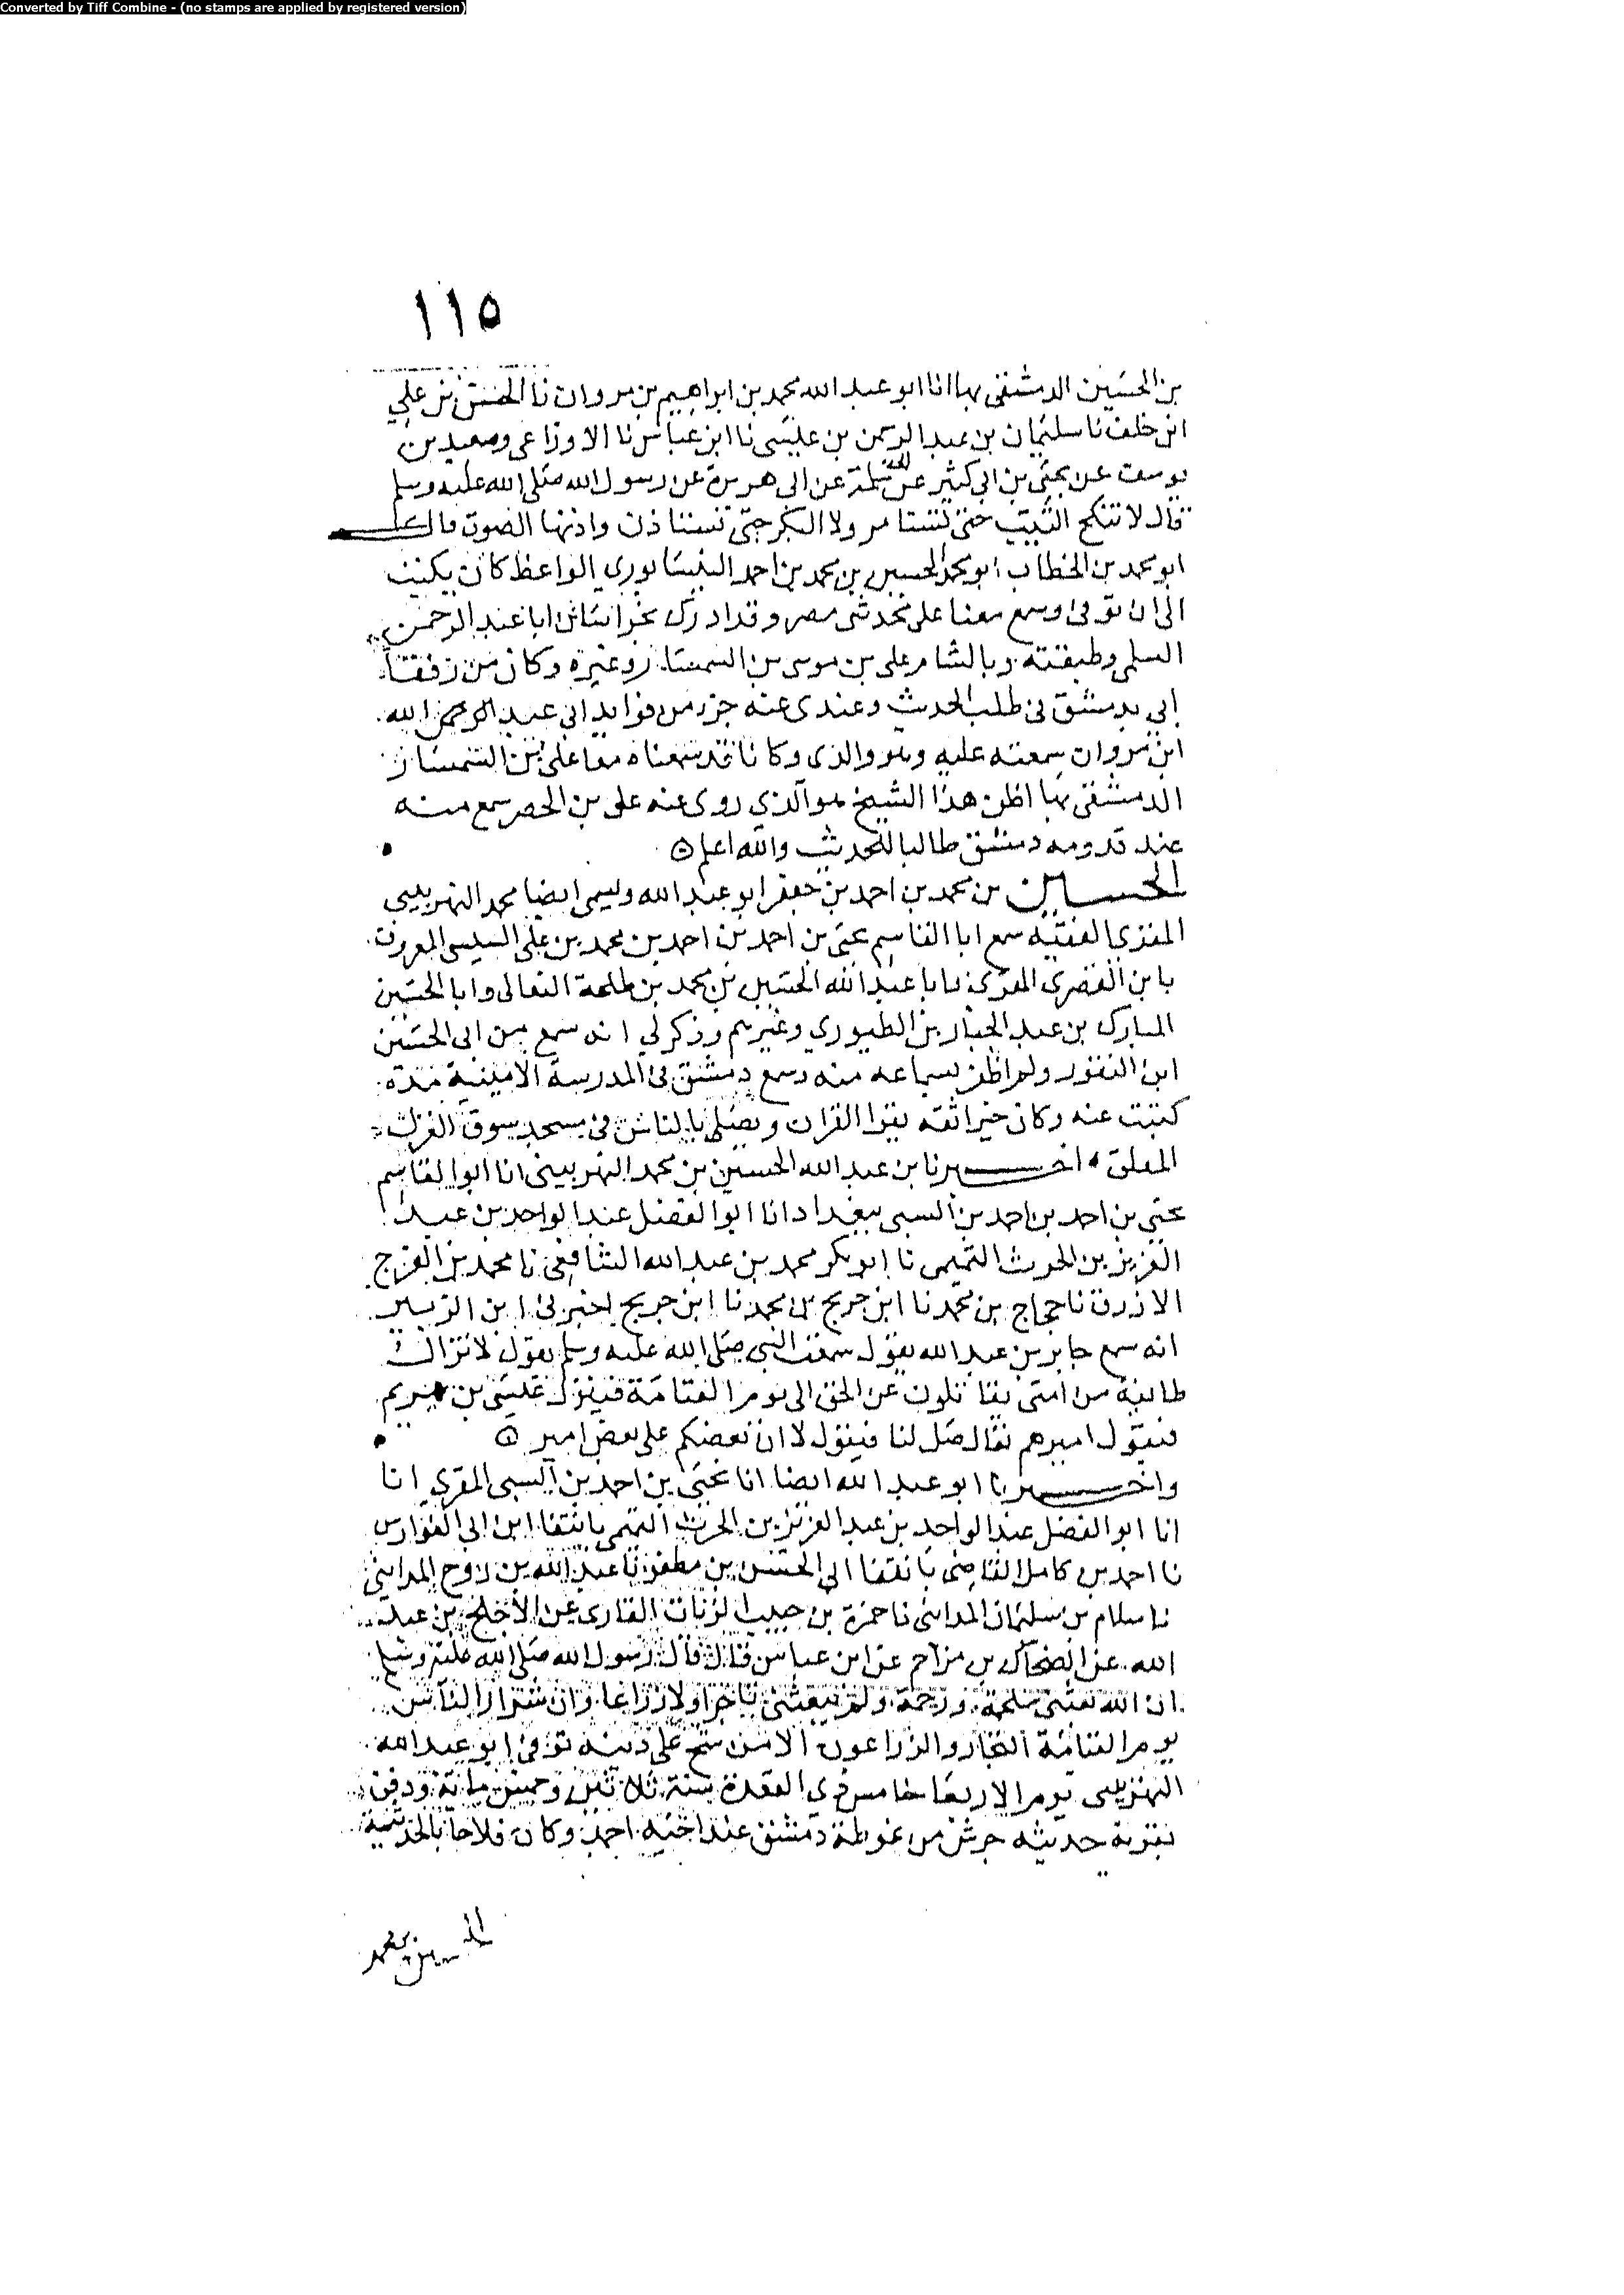 Converted by Tiff Combine - (no stamps are applied by registered version)
١١٥
بن الحسين الدمشقي بها انا ابو عبد الله محمد بن ابراهيم بن مروان نا الحسن بن علي
ابن خلف نا سليمان بن عبد الرحمن بن عيسى نا ابن عباس نا الاوزاعي وسعيد بن
يوسف عن يحيى بن ابي كثير عن سلمة عن ابي هريرة عن رسول الله صلى الله عليه وسلم
قال لا تنكح الثيب حتى تستامر ولا البكر حتى تستاذن واذنها الصوت قال
ابو محمد بن الخطاب ابو محمد الحسين بن محمد بن احمد النيسابوري الواعظ كان يكتب
الى ان توفى وسمع معنا على محدثي مصر وقد ادرك بخراسان ابا عبد الرحمن
السلمي وطبقته وبالشام علي بن موسى بن السمسار وغيره وكان من رفقا
ابي بدمشق في طلب الحديث وعندي عنه جزء من فوايد ابي عبد الله
ابن مروان سمعته عليه وهو والدي وكانا قد سمعناه معا على ابن السمسار
الدمشقي بها اظن هذا الشيخ هو الذي روى عنه علي بن الحصر سمع منه
عند قدومه دمشق طالبا للحديث والله اعلم
الحسين بن محمد بن احمد بن جعفر ابو عبد الله ويسمى ايضا محمد النهربيني
المقرى الفقيه سمع ابا القاسم يحيى بن احمد بن احمد بن محمد بن علي السيبي المعروف
بابن القصري المقرى وابا عبد الله الحسين بن محمد بن طلحة النعالي وابا الحسين
المبارك بن عبد الجبار بن الطيوري وغيرهم وذكر لي انه سمع من ابي الحسين
ابن النقور ولم اظفر بسماعه منه وسمع دمشق في المدرسة الامينية مدة
كتبت عنه وكان خيرا ثقه يقرا القران ويصلي بالناس في مسجد سوق الغزل
المعلق اخبرنا بن عبد الله الحسين بن محمد النهربيني انا ابو القاسم
يحيى بن احمد بن احمد بن السيبي ببغداد انا ابو الفضل عبد الواحد بن عبد
العزيز بن الحرث التميمي نا ابو بكر محمد بن عبد الله الشافعي نا محمد بن الفرج
الازرق نا حجاج بن محمد نا ابن جريج بن محمد نا ابن جريج اخبرني ابن الزبير
انه سمع جابر بن عبد الله يقول سمعت النبي صلى الله عليه وسلم يقول لا تزال
طائفة من امتي يقاتلون عن الحق الى يوم القيامة فينزل عيسى بن مريم
فيقول اميرهم تعال صل لنا فيقول لا ان بعضكم على بعض امير
واخبرنا ابو عبد الله ايضا انا يحيى بن احمد بن السيبي المقري انا
انا ابو الفضل عبد الواحد بن عبد العزيز بن الحرث التميمي بانتقا ابن ابي الفوارس
نا احمد بن كامل القاضي بانتقا ابي الحسن بن مظفر نا عبد الله بن روح المدايني
نا سلام بن سليمان المدايني نا حمزة بن حبيب الزيات القارى عن الاجلح بن عبد
الله عن الضحاك بن مزاحم عن ابن عباس قال قال رسول الله صلى الله عليه وسلم
ان الله بعثني ملحمة ورحمة ولم يبعثني تاجرا ولا زراعا وان شرار الناس
يوم القيامة التجار والزراعون الا من شح على دينه توفى ابو عبد الله
النهربيني يوم الاربعا خامس ذي القعدة سنة ثلاثين وخمس مائة ودفن
بقرية حديثه جرش من غوطة دمشق عند اخيه احمد وكان فلاحا بالحديثة
الحسين بن محمد